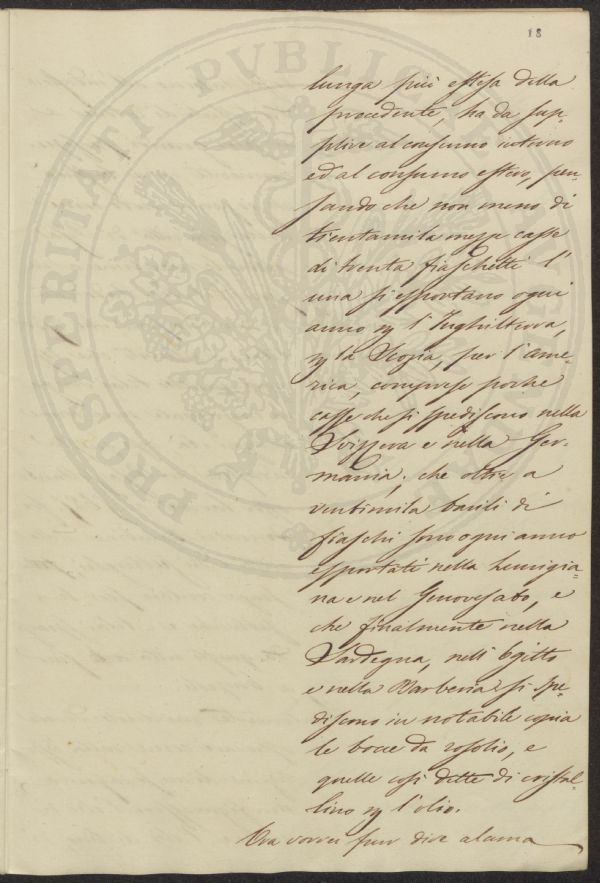 18
lunga più estesa della
procedente, ha da sup-
plire al consumo interno
ed al consumo estero, pen-
sando che non meno di
trentamila mezze casse
di trenta fiaschetti l'
una si esportano ogni
anno p l'Inghilterra,
p la Scozia, per l'Ame-
rica, comprese poche
casse che si spediscono nella
Svizzera e nella Ger-
mania; che oltre a
ventimila barili di
fiaschi sono ogni anno
esportati nella Lunigia-
na e nel Genovesato, e
che finalmente nella
Sardegna, nell'Egitto
e nella Barberia si spe-
discono in notabile copia
le bocce da rosolio, e
quelle così dette di cristal-
lino p l'olio.
Ora vorrei pur dire alcuna
PROSPERITATI PVBLICAE